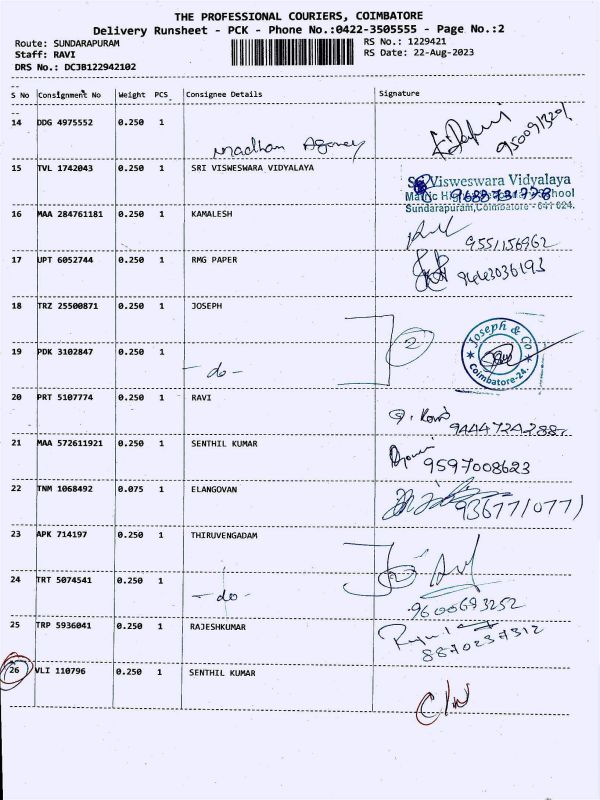 THE PROFESSIONAL COURIERS, COIMBATORE
Delivery Runsheet - PCK - Phone No.:0422-3505555 - Page No.:2
Route: SUNDARAPURAM RS No.: 1229421
Staff: RAVI RS Date: 22-Aug-2023
DRS No.: DCJB122942102
S No Consignment No Weight PCS Consignee Details Signature
14 DDG 4975552 0.250 1
madhan Agency
15 TVL 1742043 0.250 1 SRI VISWESWARA VIDYALAYA
Visweswara Vidyalaya
School
Sundarapuram, Coimbatore - 641 024.
16 MAA 284761181 0.250 1 KAMALESH
9551156962
17 UPT 6052744 0.250 1 RMG PAPER
9443036193
18 TRZ 25500871 0.250 1 JOSEPH
2
Joseph & Co
Coimbatore-24.
19 PDK 3102847 0.250 1
- do -
20 PRT 5107774 0.250 1 RAVI
21 MAA 572611921 0.250 1 SENTHIL KUMAR
9597008623
22 TNM 1068492 0.075 1 ELANGOVAN
9367710771
23 APK 714197 0.250 1 THIRUVENGADAM
24 TRT 5074541 0.250 1
- do -
9600693252
25 TRP 5936041 0.250 1 RAJESHKUMAR
8870237312
26 VLI 110796 0.250 1 SENTHIL KUMAR